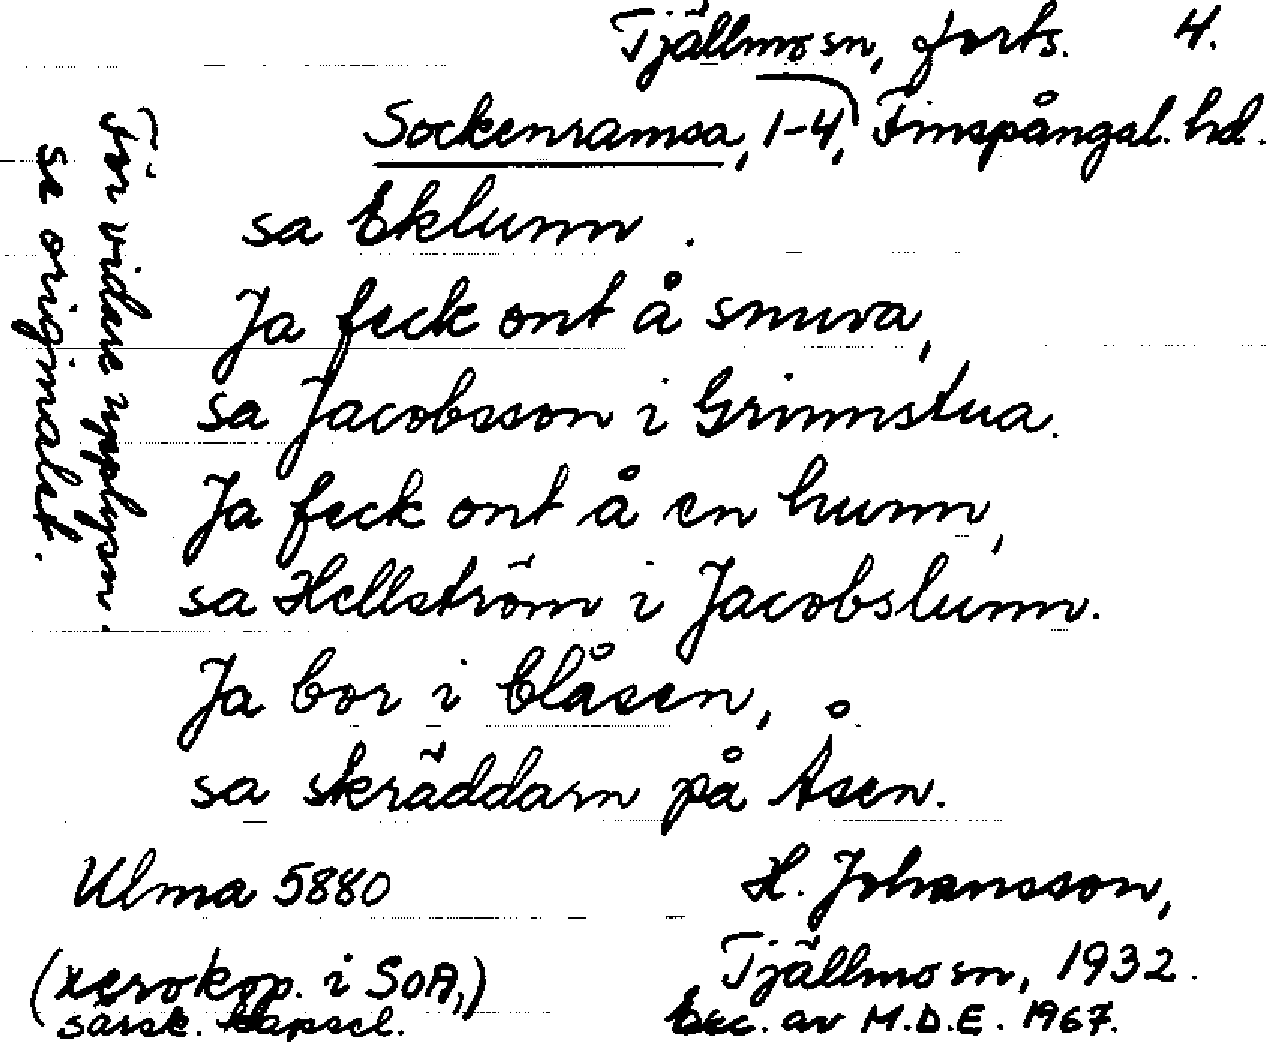 Tjällmo sn, forts. 4.
Sockenramsa, 1-4, Finspångal. hd.
sa Eklunn.
Ja feck ont å snuva,
sa Jacobsson i Grinnstua.
Ja feck ont å en hunn,
sa Hellström i Jacobslunn.
Ja bor i blåsen,
sa skräddarn på Åsen.
Ulma 5880
H. Johansson,
(xerokop. i SoA,)
Tjällmo sn, 1932.
särsk. kapsel.
exc. av M.D.E. 1967.
För vidare upplysn.
se originalet.